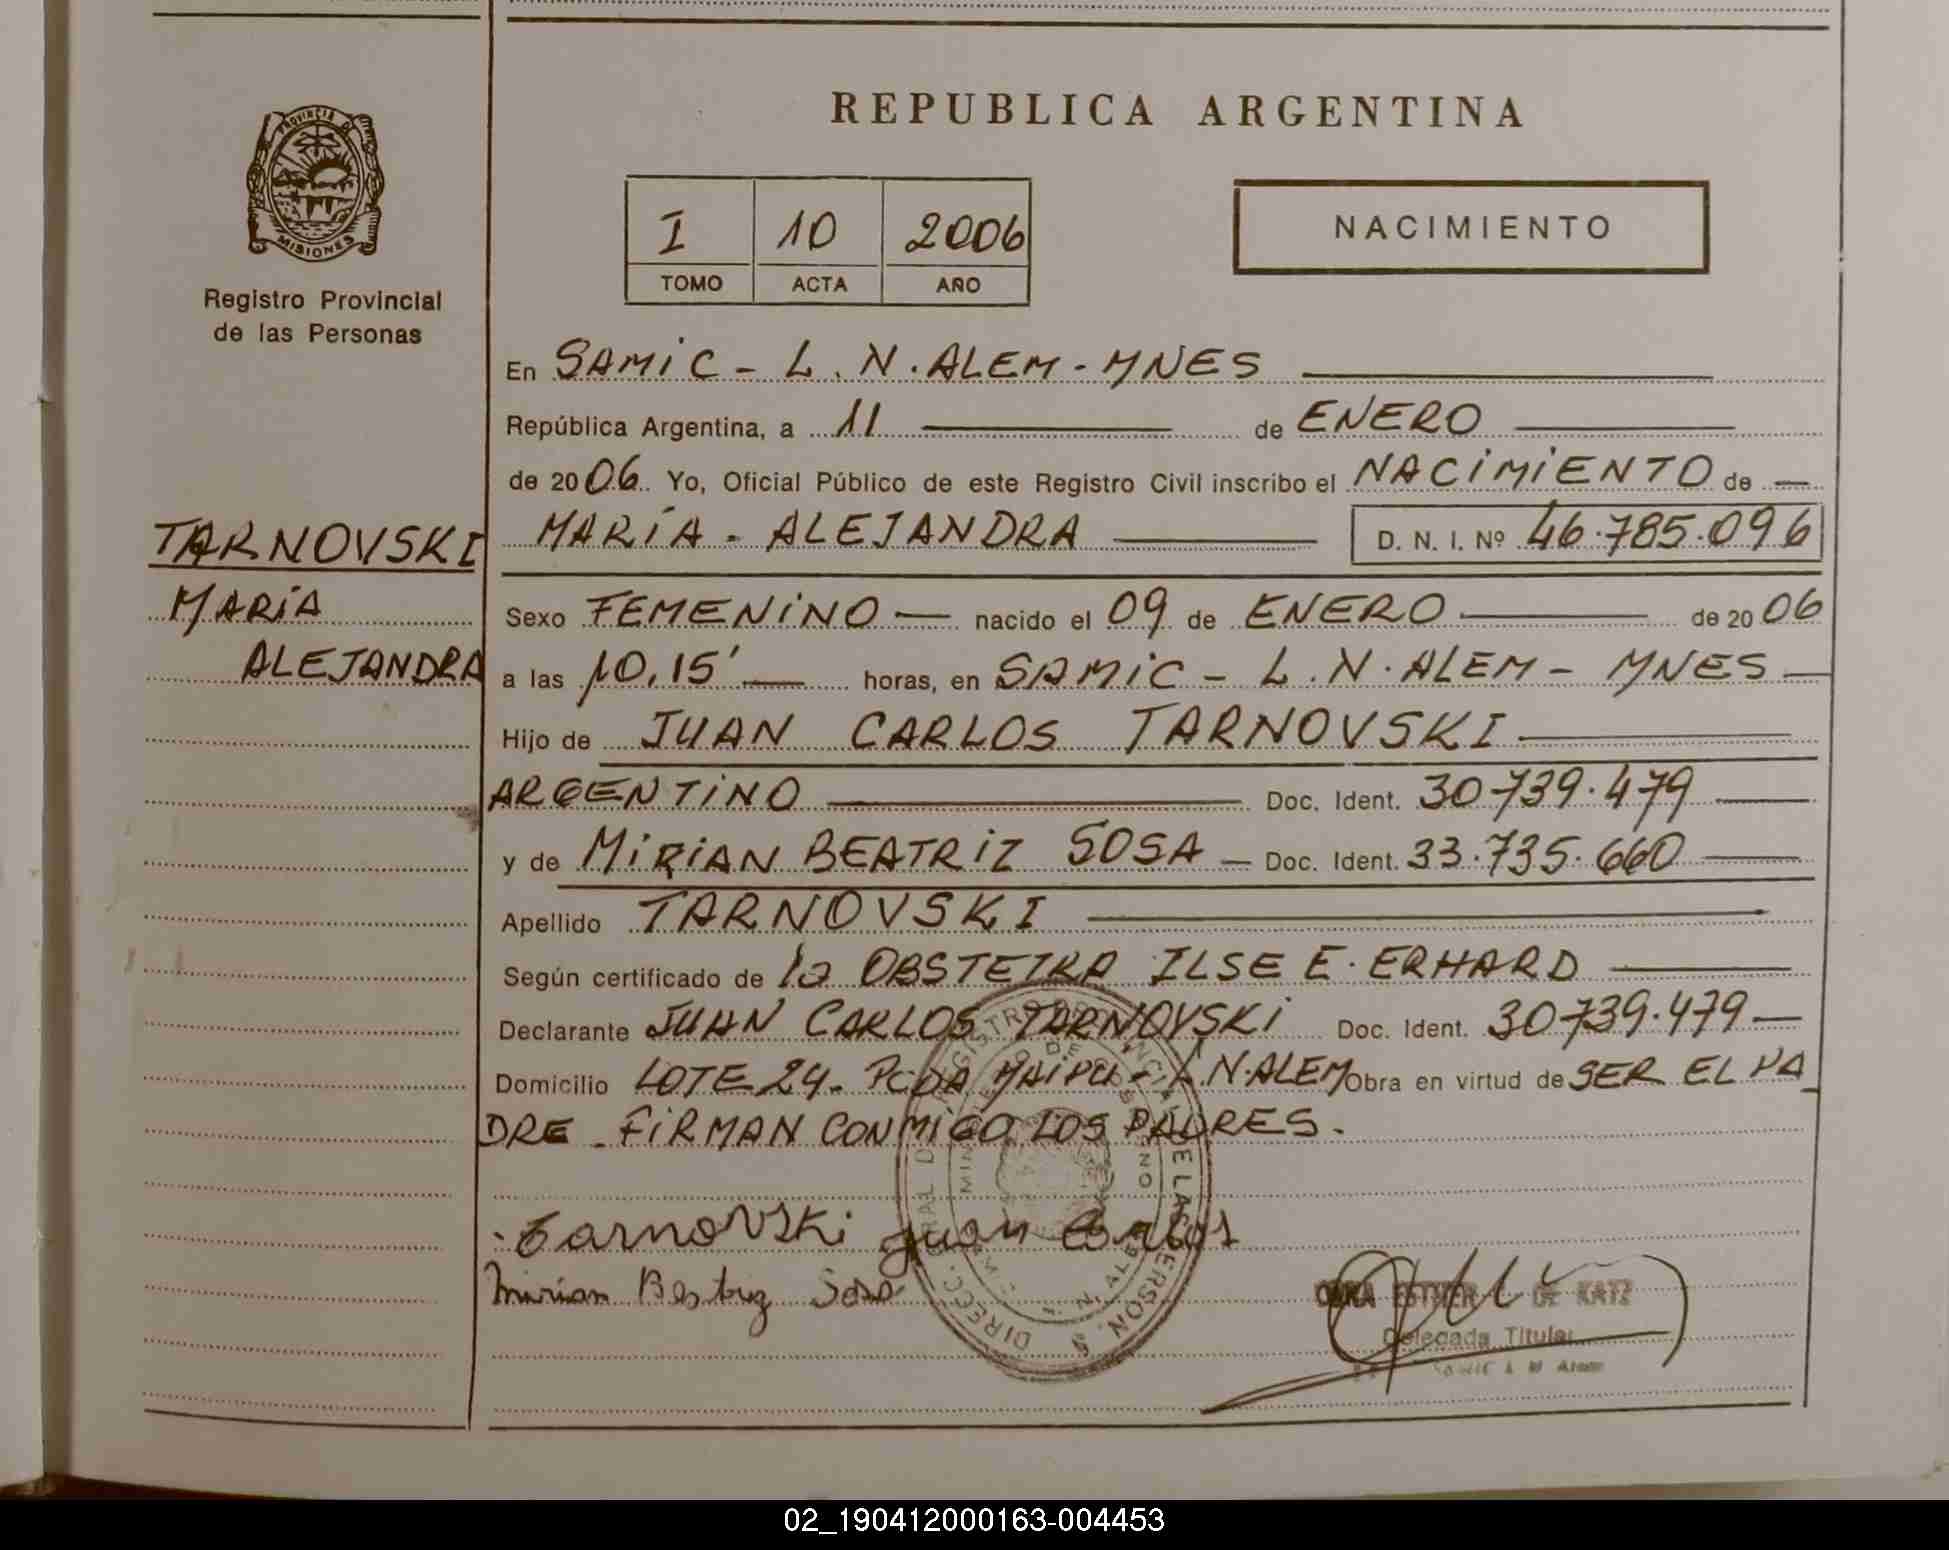 REPUBLICA ARGENTINA
PROVINCIA DE
MISIONES
Registro Provincial
de las Personas
I 10 2006
TOMO ACTA AÑO
NACIMIENTO
En SAMIC - L. N. ALEM - MNES
República Argentina, a 11 de ENERO
de 2006. Yo, Oficial Público de este Registro Civil inscribo el NACIMIENTO de
TARNOVSKI
MARÍA
ALEJANDRA
MARÍA - ALEJANDRA D. N. I. Nº 46.785.096
Sexo FEMENINO nacido el 09 de ENERO de 2006
a las 10,15' horas, en SAMIC - L. N. ALEM - MNES
Hijo de JUAN CARLOS TARNOVSKI
ARGENTINO Doc. Ident. 30.739.479
y de MIRIAN BEATRIZ SOSA Doc. Ident. 33.735.660
Apellido TARNOVSKI
Según certificado de la OBSTETRA ILSE E. ERHARD
Declarante JUAN CARLOS TARNOVSKI Doc. Ident. 30.739.479
Domicilio LOTE 24 - PCDA MAIPU - L.N.ALEM Obra en virtud de SER EL PA
DRE - FIRMAN CONMIGO LOS PADRES.
Tarnovski Juan Carlos
Mirian Beatriz Sosa
ESTHER DE KATZ
Delegada Titular
02_190412000163-004453